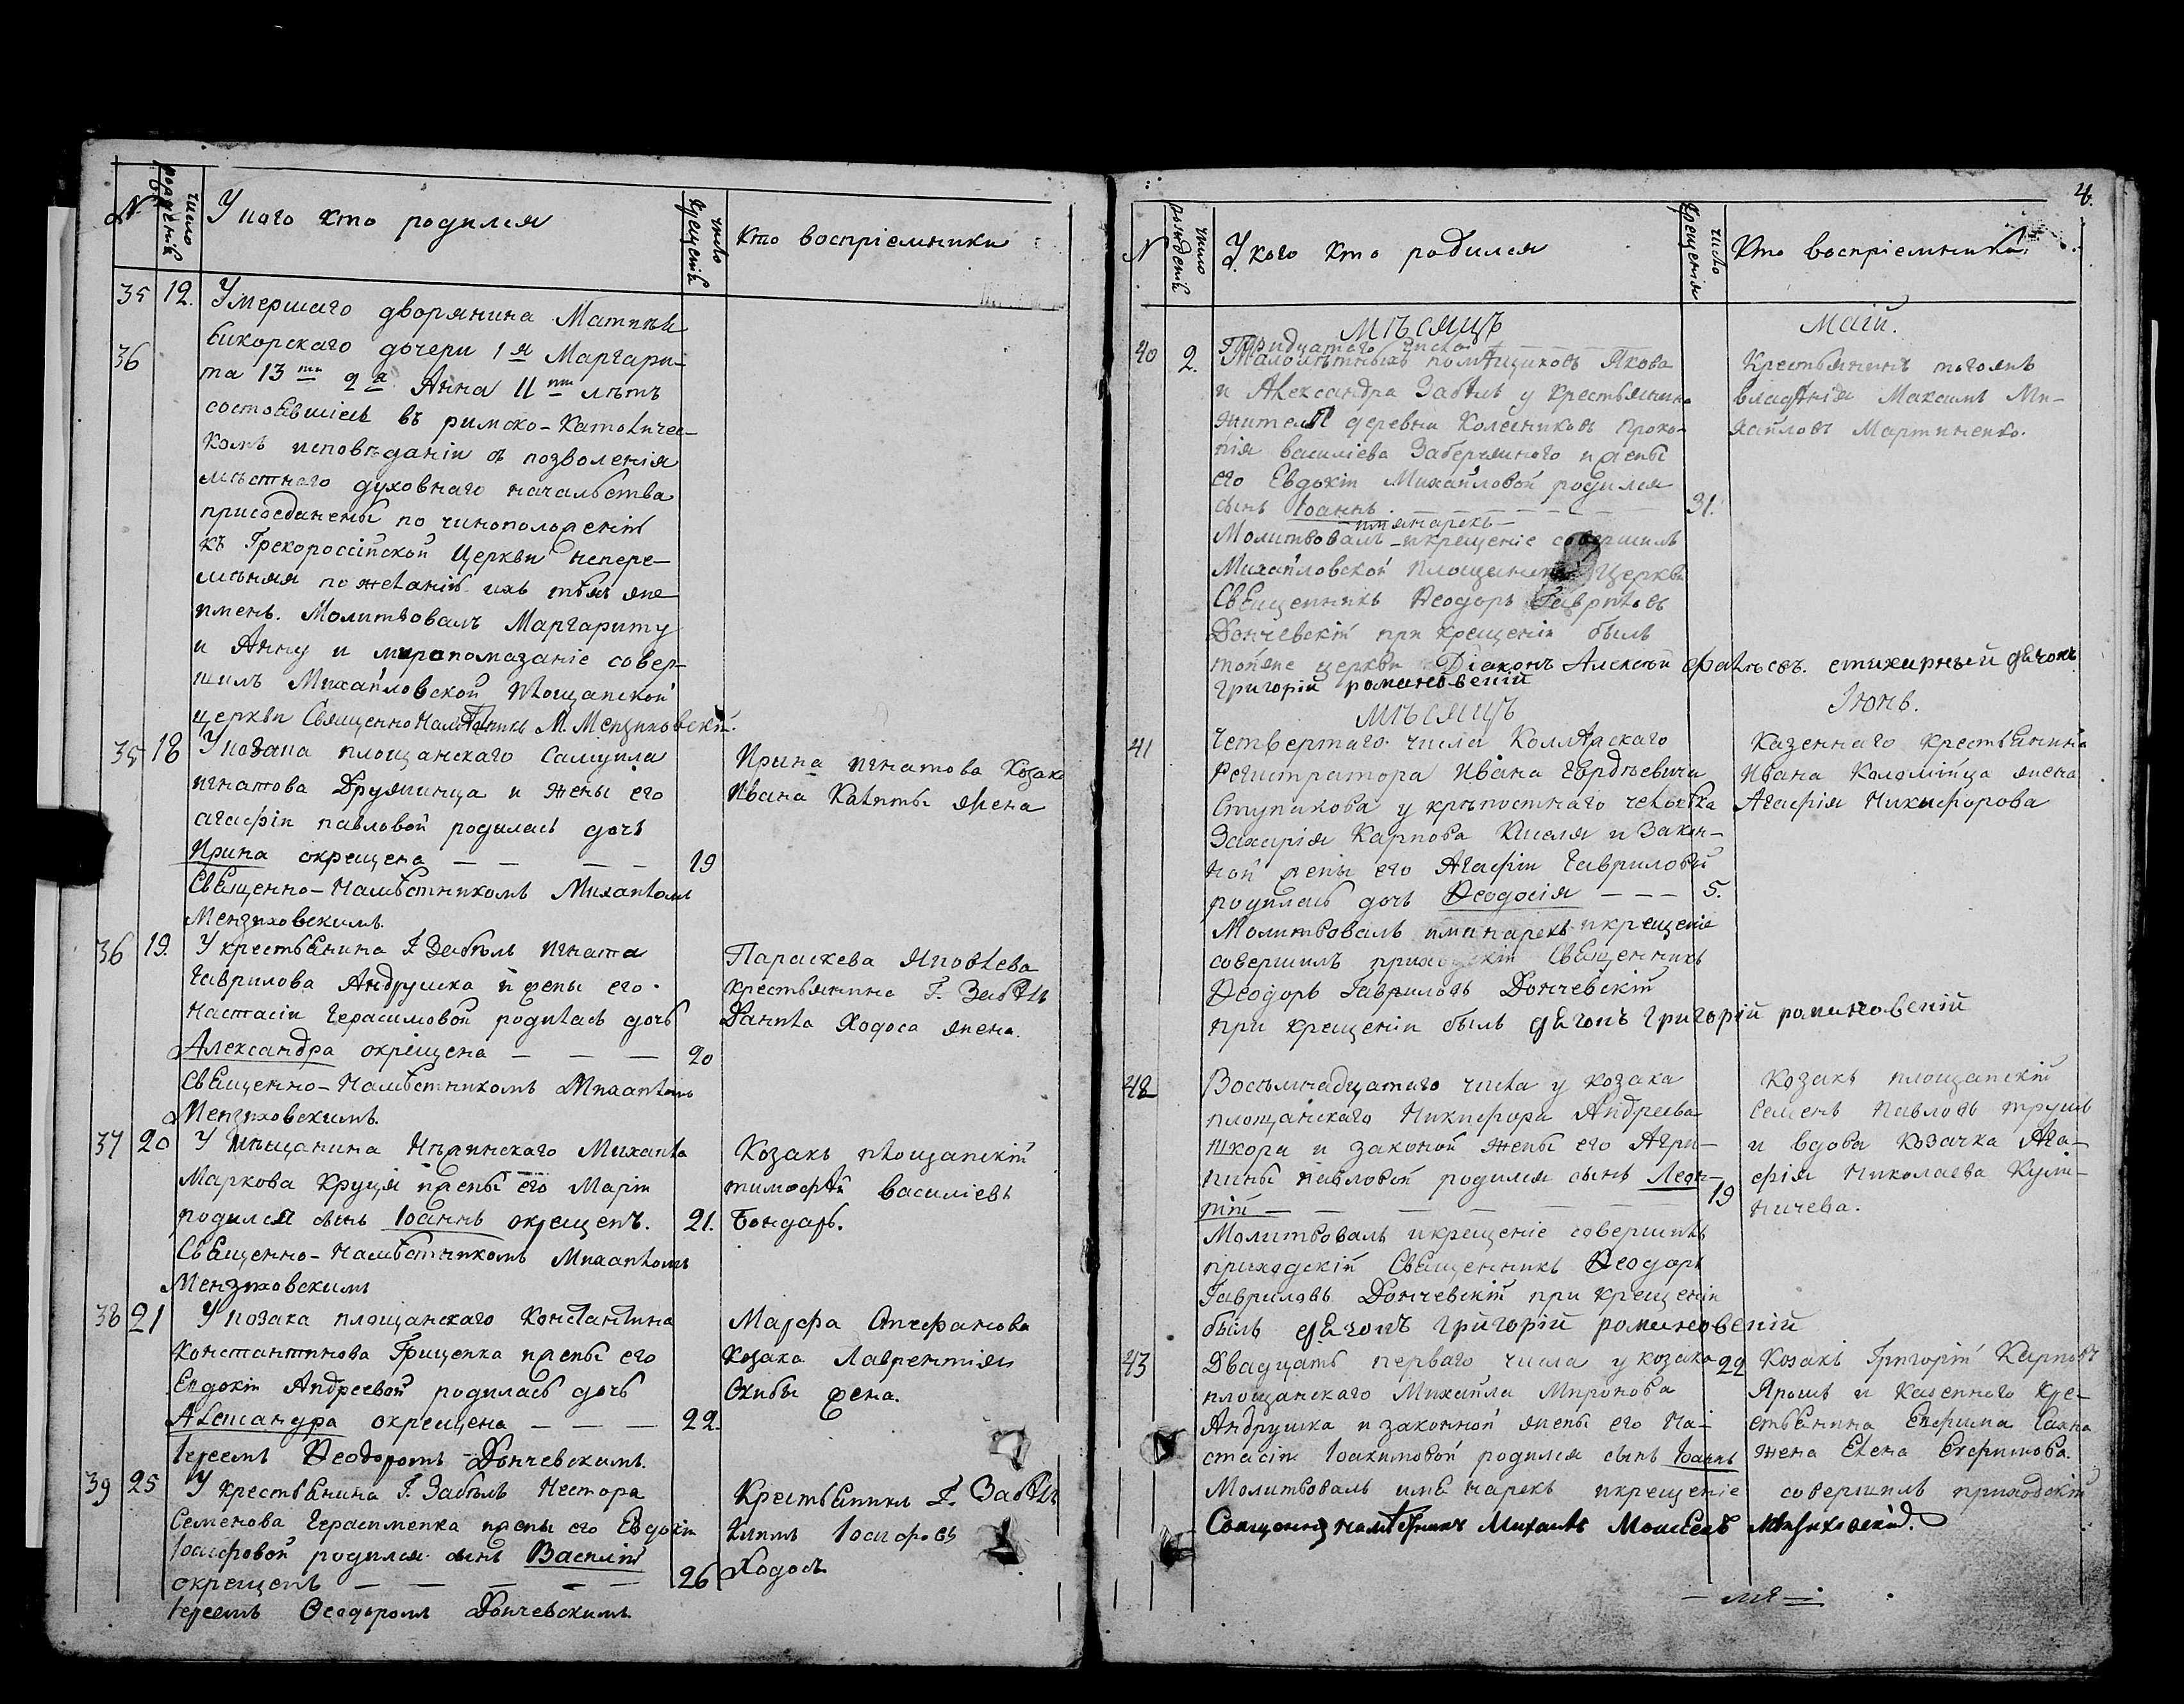 №
число рожденій
У кого кто родился
число крещенія
Кто воспріемники
35 12. Умершаго дворянина Матвѣя
36 Сикорскаго дочери 1я Маргари-
та 13ти 2я Анна 11ти лѣтъ
состоявшіесь въ римско-Католичес-
комъ исповѣданіи съ позволенія
мѣстнаго духовнаго начальства
присоединены по чиноположенію
къ Грекороссійской Церкви непере-
мѣняя по желанію ихъ тѣхъ же
имень. Молитвовалъ Маргариту
и Анну и миропомазаніе совер-
шилъ Михайловской площанской
церкви Священно Намѣстникъ М. Мензиховскій.
35 18 У козака площанскаго Самуила
Игнатова Друминца и жены его
агафіи павловой родилась дочь
Ирина окрещена — — — — 19
Священно-Намѣстникомъ Михаиломъ
Мензиховскимъ.
Ирина Игнатова Козака
Ивана Калиты жена
36 19. У крестьянина Г. Забѣлъ Игната
Гаврилова Андрушка и жены его
Настасіи Герасимовой родилась дочь
Александра окрещена — — — 20
Священно-Намѣстникомъ Михаиломъ
Мензиховскимъ.
Параскева Яковлева
крестьянина Г. Забѣлъ
Данила Ходоса жена.
37 20 У мѣщанина Нѣжинскаго Михаила
Маркова Круця и жены его Маріи
родился сынъ Іоаннъ окрещенъ. 21.
Священно-Намѣстникомъ Михаиломъ
Мензиховскимъ
Козакъ площанскій
тимофѣй василіевъ
Бондарь.
38 21 У козака площанскаго Константина
Константинова Грищенка и жены его
Евдокіи Андреевой родилась дочь
Александра окрещена — — — 22.
Іереемъ Ѳеодоромъ Дончевскимъ.
Марфа Стефанова
козака Лаврентія
Скибы жена.
39 25 У крестьянина Г. Забѣлъ Нестора
Семенова Герасименка и жены его Евдокіи
Іосифовой родился сынъ Василій
окрещенъ — — — — — 26
Іереемъ Ѳеодоромъ Дончевскимъ.
Крестьянинъ Г. Забѣлъ
Іосифовъ
Ходосъ
4.
N
число рожденій
У кого кто родился
число крещенія
Кто воспріемники.
Мѣсяцъ Маій.
Тридцатаго числа
40 2. Малолѣтныхъ помѣщиковъ Якова
и Александра Забѣлъ у крестьянина
жителя деревни Колесниковъ Проко-
пія василіева Заберяшного и жены
его Евдокіи Михайловой родился
сынъ Іоаннъ. — — — — — 31.
имя нарекъ
Молитвовалъ и крещеніе совершилъ
Михайловской Площанской Церкви
Священникъ Ѳеодоръ Гавриловъ
Дончевскій при крещеніи былъ
тойже церкви Діаконъ Алексѣй стихирный дячокъ
григорій романовскій
Крестьянинъ тогожъ
владѣнія Максимъ Ми-
хайловъ Мартиненко.
Мѣсяцъ Іюнь.
41 Четвертаго числа Коллѣжскаго
Регистратора Ивана Гордѣевича
Ступикова у крѣпостнаго человѣка
Захарія Карпова Киселя и Закон-
ной жены его Агафіи Гавриловой
родилась дочь Ѳеодосія — — — 5.
Молитвовалъ имя нарекъ и крещеніе
совершилъ приходскій Священникъ
Ѳеодоръ Гавриловъ Дончевскій
при крещеніи былъ дячокъ григорій романовскій
Казеннаго крестьянина
Ивана Коломійца жена
Агафія Никифорова
42 Восьмнадцатаго числа у козака
площанскаго Никифора Андреева
Шкори и законой жены его Агри-
пины павловой родился сынъ Леон-
тій — — — — — — 19
Молитвовалъ и крещеніе совершилъ
приходскій Священникъ Ѳеодоръ
Гавриловъ Дончевскій при крещеніи
былъ дячокъ григорій романовскій
Козакъ площанскій
Семенъ павловъ трушъ
и вдова Козачка Ага-
фія Николаева Кули-
ничева.
43 Двадцать перваго числа у козака 22
площанскаго Михайла Миронова
Андрушка и законной жены его На-
стасіи Іоакимовой родился сынъ Іоаннъ
Молитвовалъ имя нарекъ и крещеніе совершилъ приходскій
Священно намѣстникъ Михаилъ Моисеевъ Мензиховскій.
Козакъ Григорій Карповъ
Ярошъ и казенного кре-
стьянина Евфима
жена Елена Евфимова.